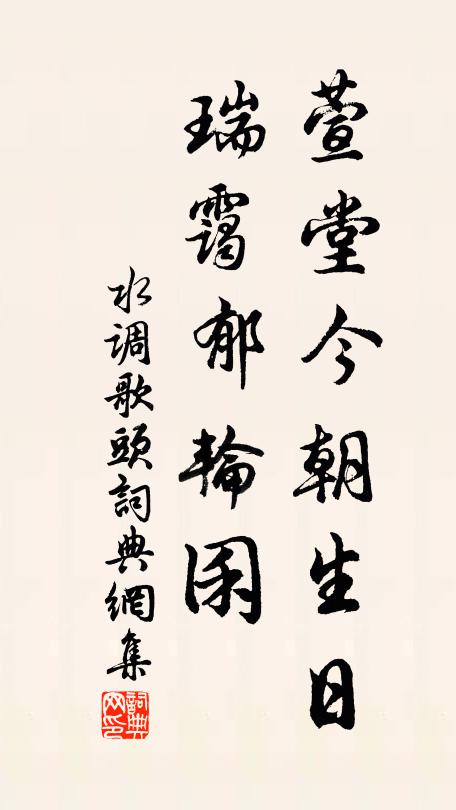 萱堂今朝生日
瑞靄郁輪囷
水调歌頭詞典網集
詞典网印